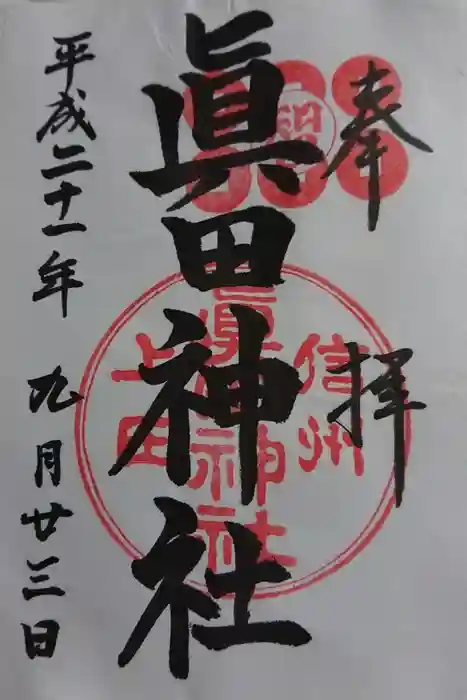 奉拝
眞田神社
平成二十一年 九月廿三日
信州
眞田神社
上田